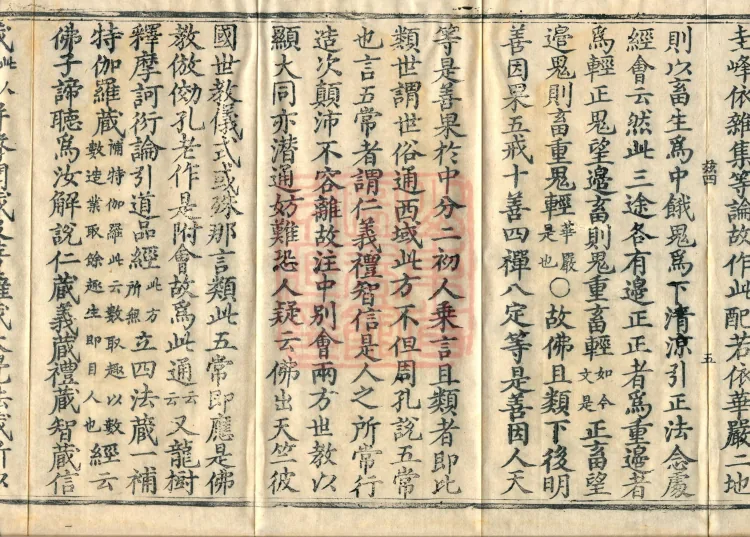 圭峰依雜集等論故作此配若依華嚴二地
四 五
則以畜生爲中餓鬼爲下清凉引正法念處
經會云然此三途各有邉正正者爲重邉者
爲輕正鬼望邉畜則鬼重畜輕如今文是正畜望
邉鬼則畜重鬼輕華嚴是也〇故佛且類下後明
善因果五戒十善四禪八定等是善因人天
等是善果於中分二初人乗言且類者即比
類世謂世俗通西域此方不但周孔說五常
也言五常者謂仁義禮智信是人之所常行
造次顚沛不容離故注中別會兩方世教以
顯大同亦潜通妨難恐人疑云佛出天竺彼
國世教儀式或殊那言類此五常即應是佛
教倣効孔老作是附會故爲此通云云又龍樹
釋摩訶衍論引道品經此方所無立四法蔵一補
特伽羅蔵補特伽羅此云數取趣以數數造業取餘趣生即目人也經云
佛子諦聽爲汝解說仁蔵義蔵禮蔵智蔵信